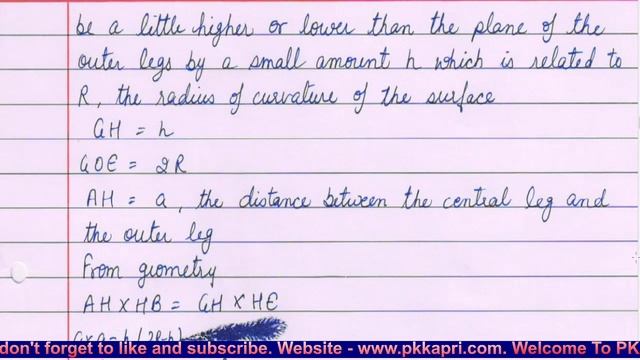 be a little higher or lower than the plane of the
outer legs by a small amount h which is related to
R, the radius of curvature of the surface
GH = h
GOE = 2R
AH = a, the distance between the central leg and
the outer leg
From geometry
AH X HB = GH X HE
a x a = h (2R-h)
don't forget to like and subscribe. Website - www.pkkapri.com. Welcome To PK